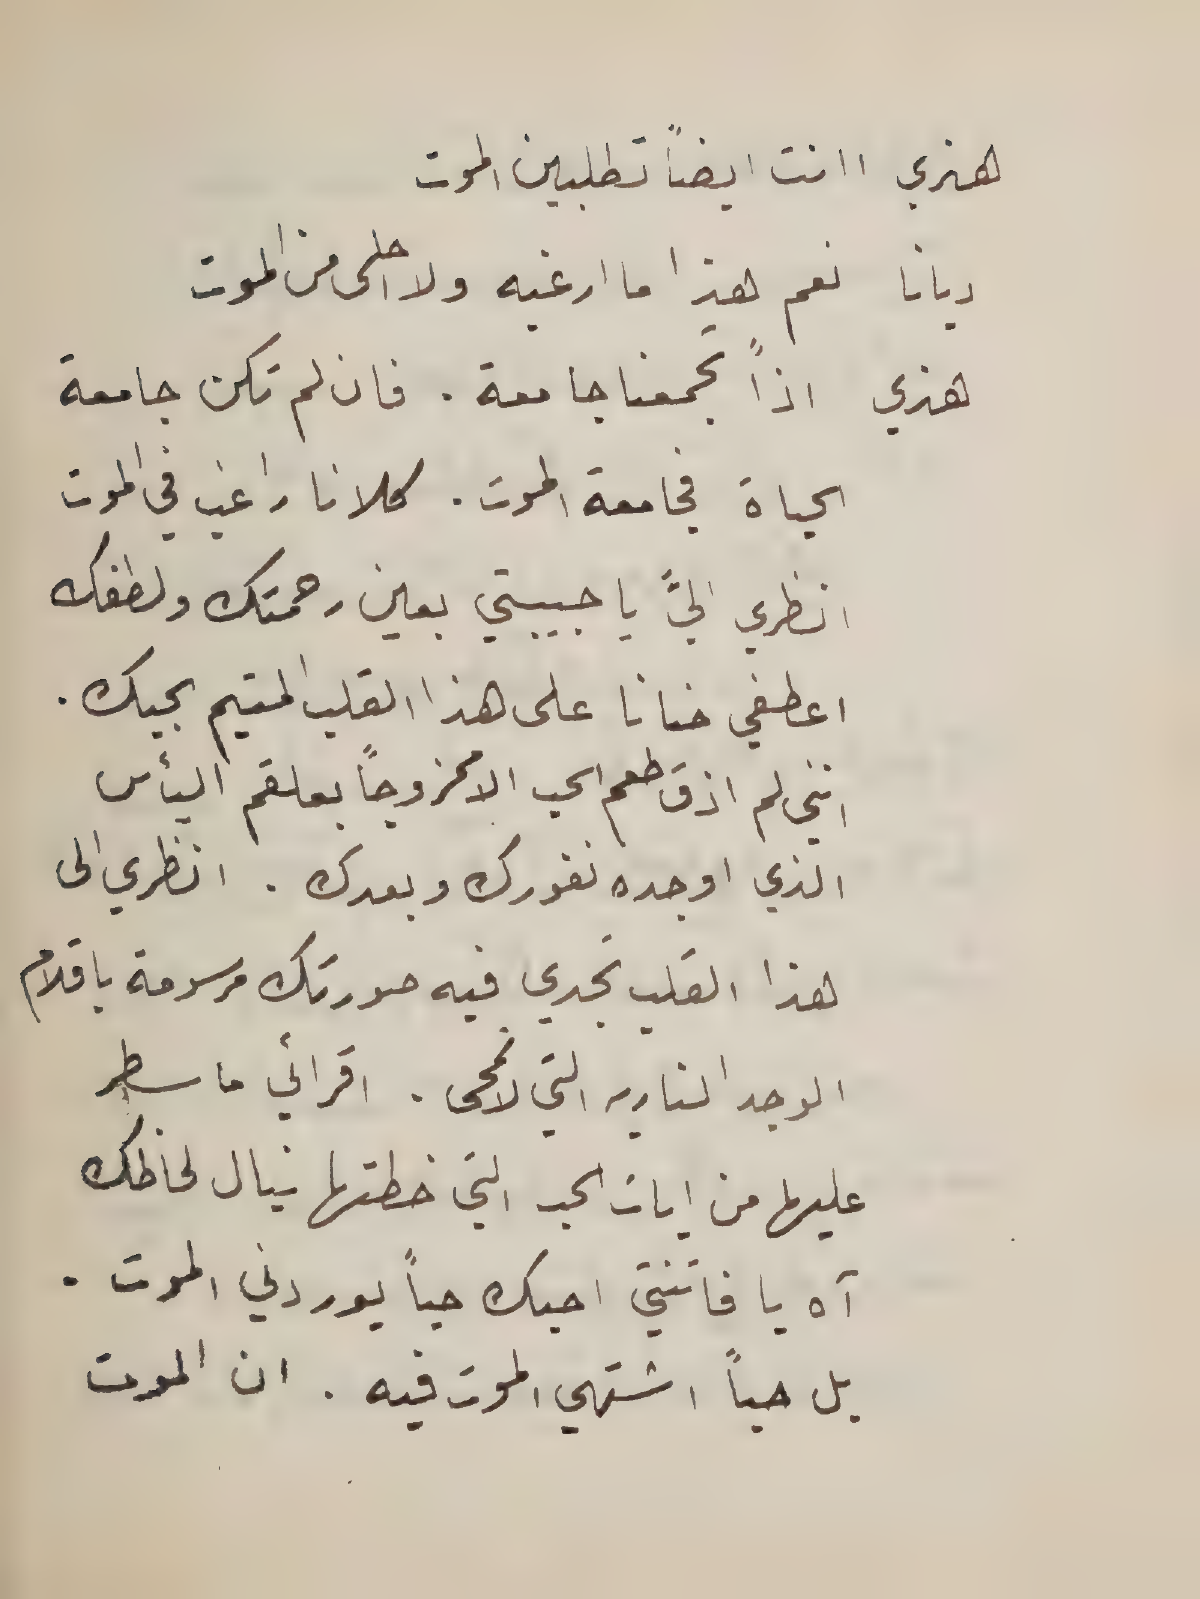 هنري اانت ايضاً تطلبين الموت
ديانا نعم هذا ما ارغبه ولا احلى من الموت
هنري اذاً تجمعنا جامعة . فان لم تكن جامعة
الحياة فجامعة الموت . كلانا راغب في الموت
انظري اليَّ يا حبيبتي بعين رحمتك ولطفك
اعطفي حنانا على هذا القلب المتيم بحبك .
انني لم اذق طعم الحب الا ممزوجاً بعلقم اليأس
الذي اوجده نفورك وبعدك . انظري الى
هذا القلب تجدي فيه صورتك مرسومة باقلام
الوجد الناريه التي لا تمحى . اقرائي ما سطر
عليها من ايات الحب التي خطتها نبال لحاظك
آه يا فاتنتي احبك حباً يوردني الموت .
بل حباً اشتهي الموت فيه . ان الموت